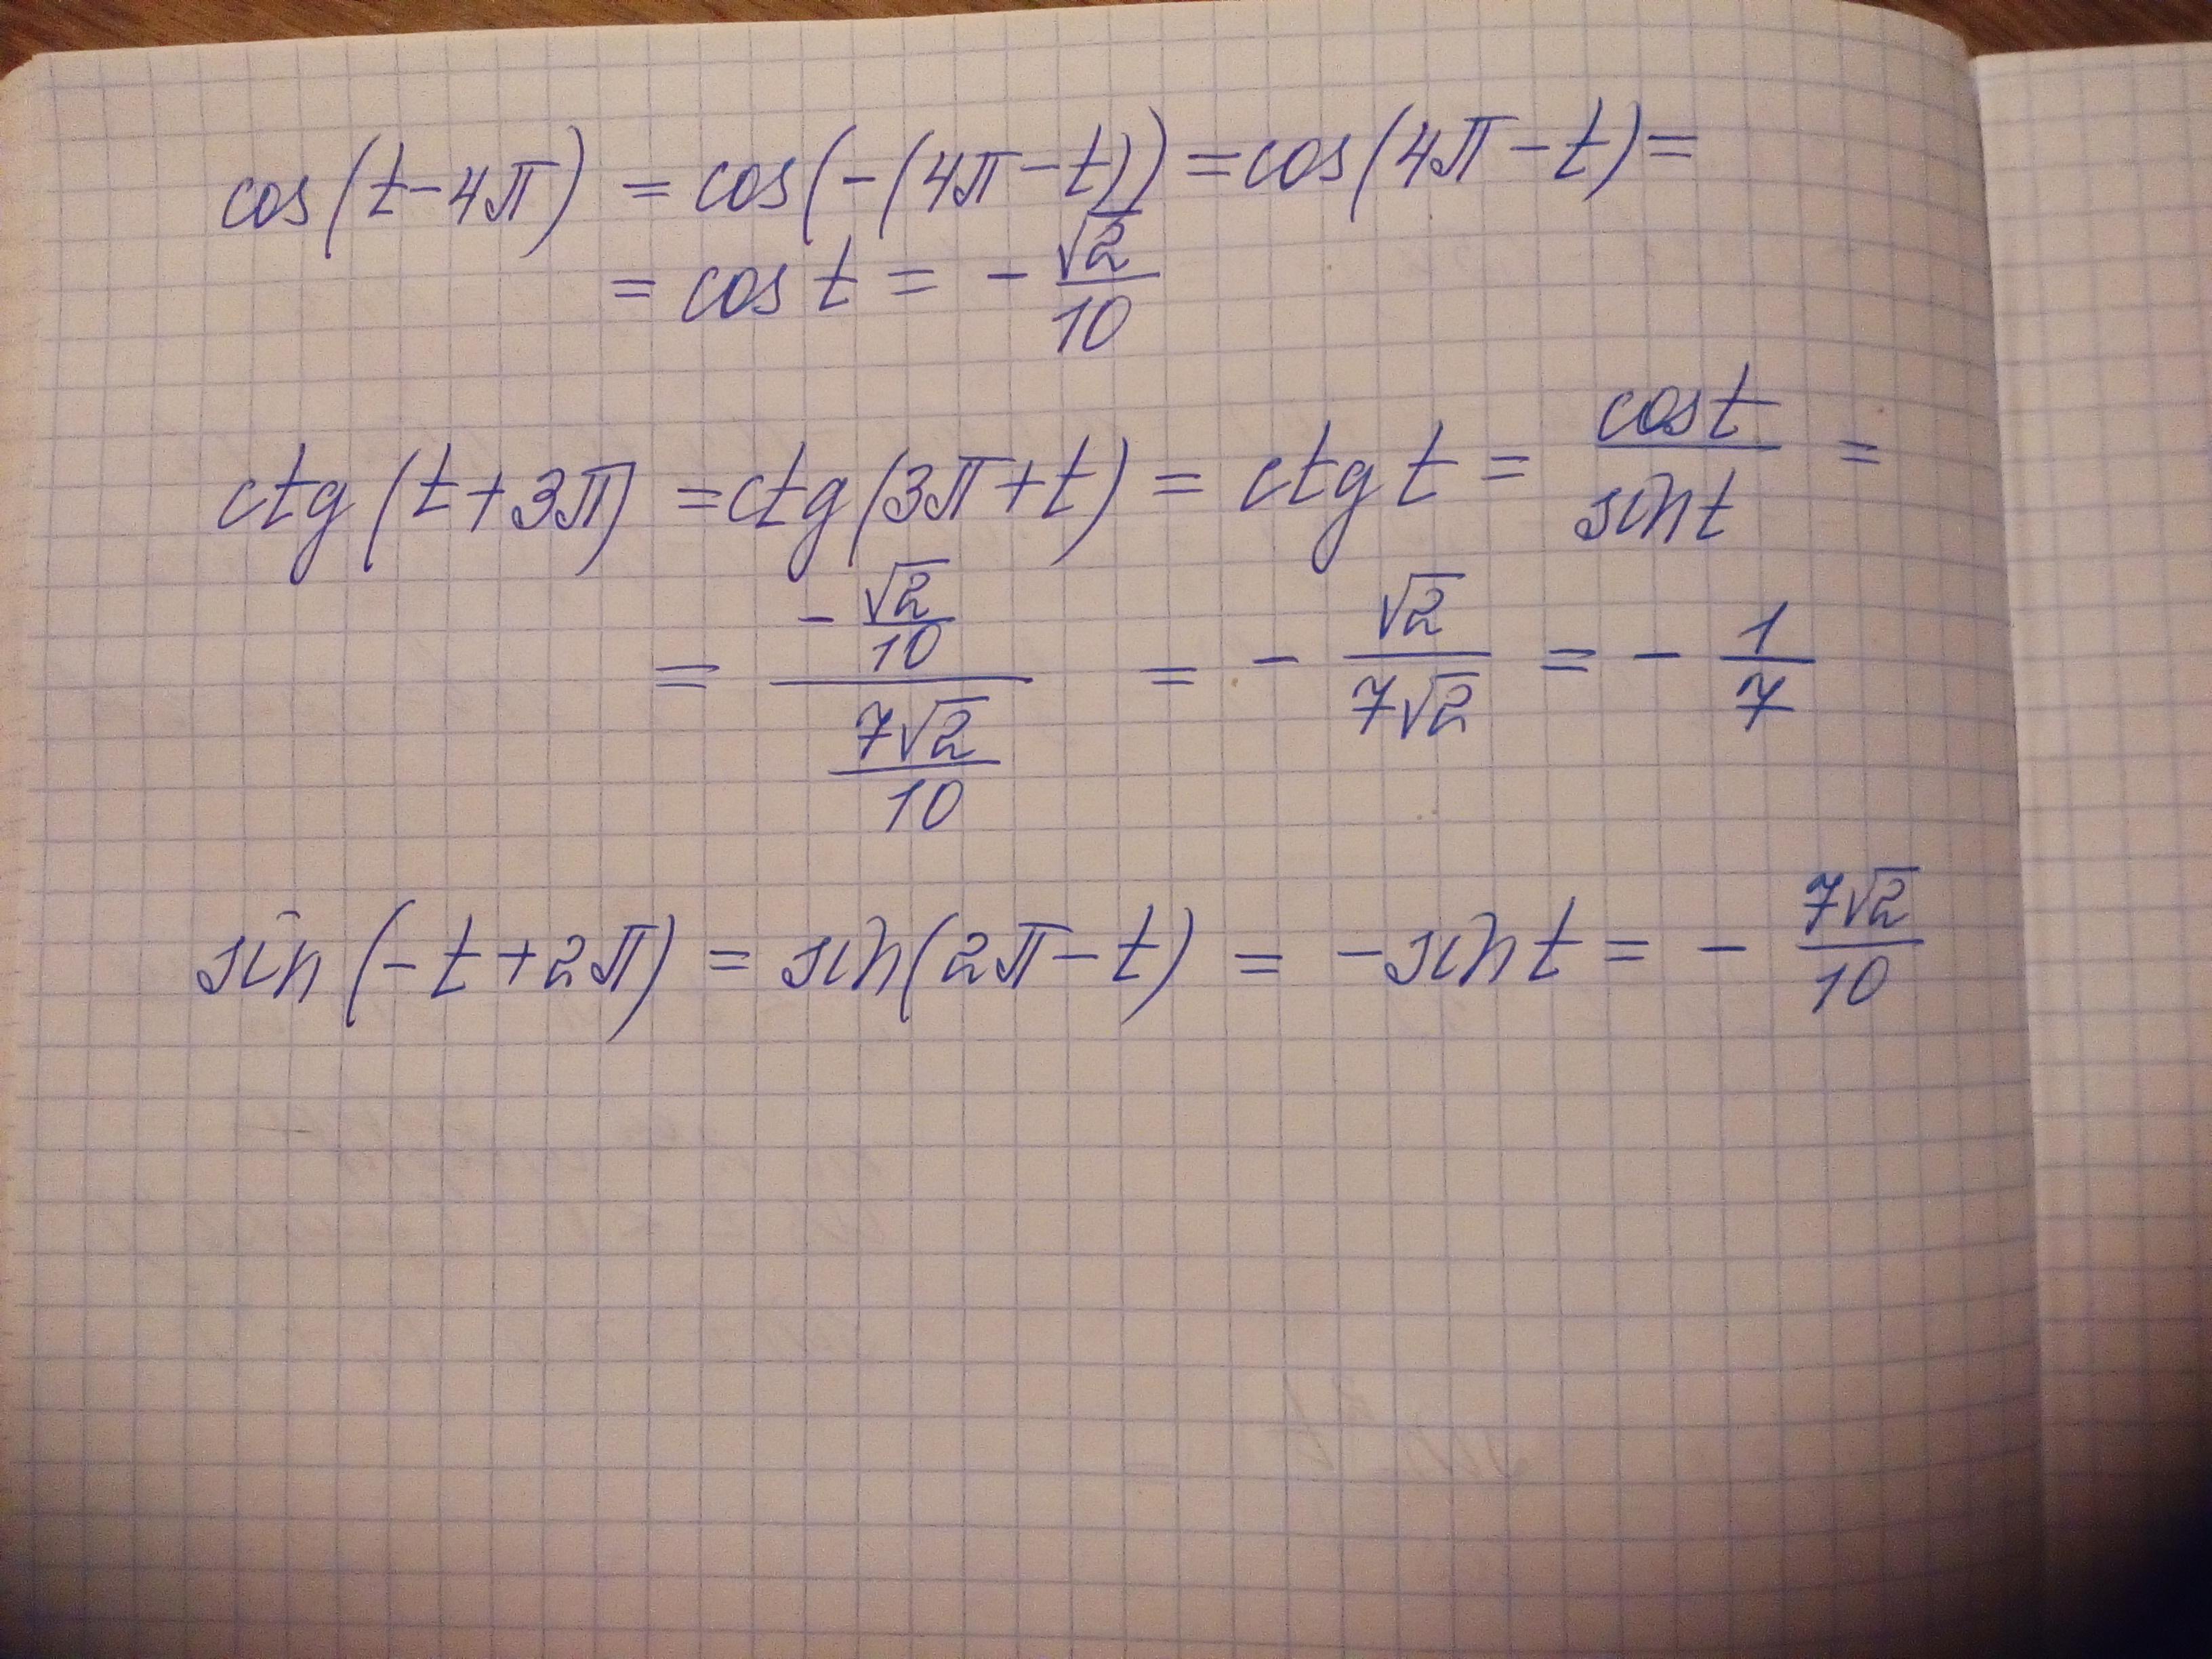 cos(t-4π) = cos(-(4π-t)) = cos(4π-t) =
= cos t = - √2/10
ctg(t+3π) = ctg(3π+t) = ctg t = cos t/sin t =
= (-√2/10)/(7√2/10) = - √2/7√2 = - 1/7
sin(-t+2π) = sin(2π-t) = -sin t = - 7√2/10